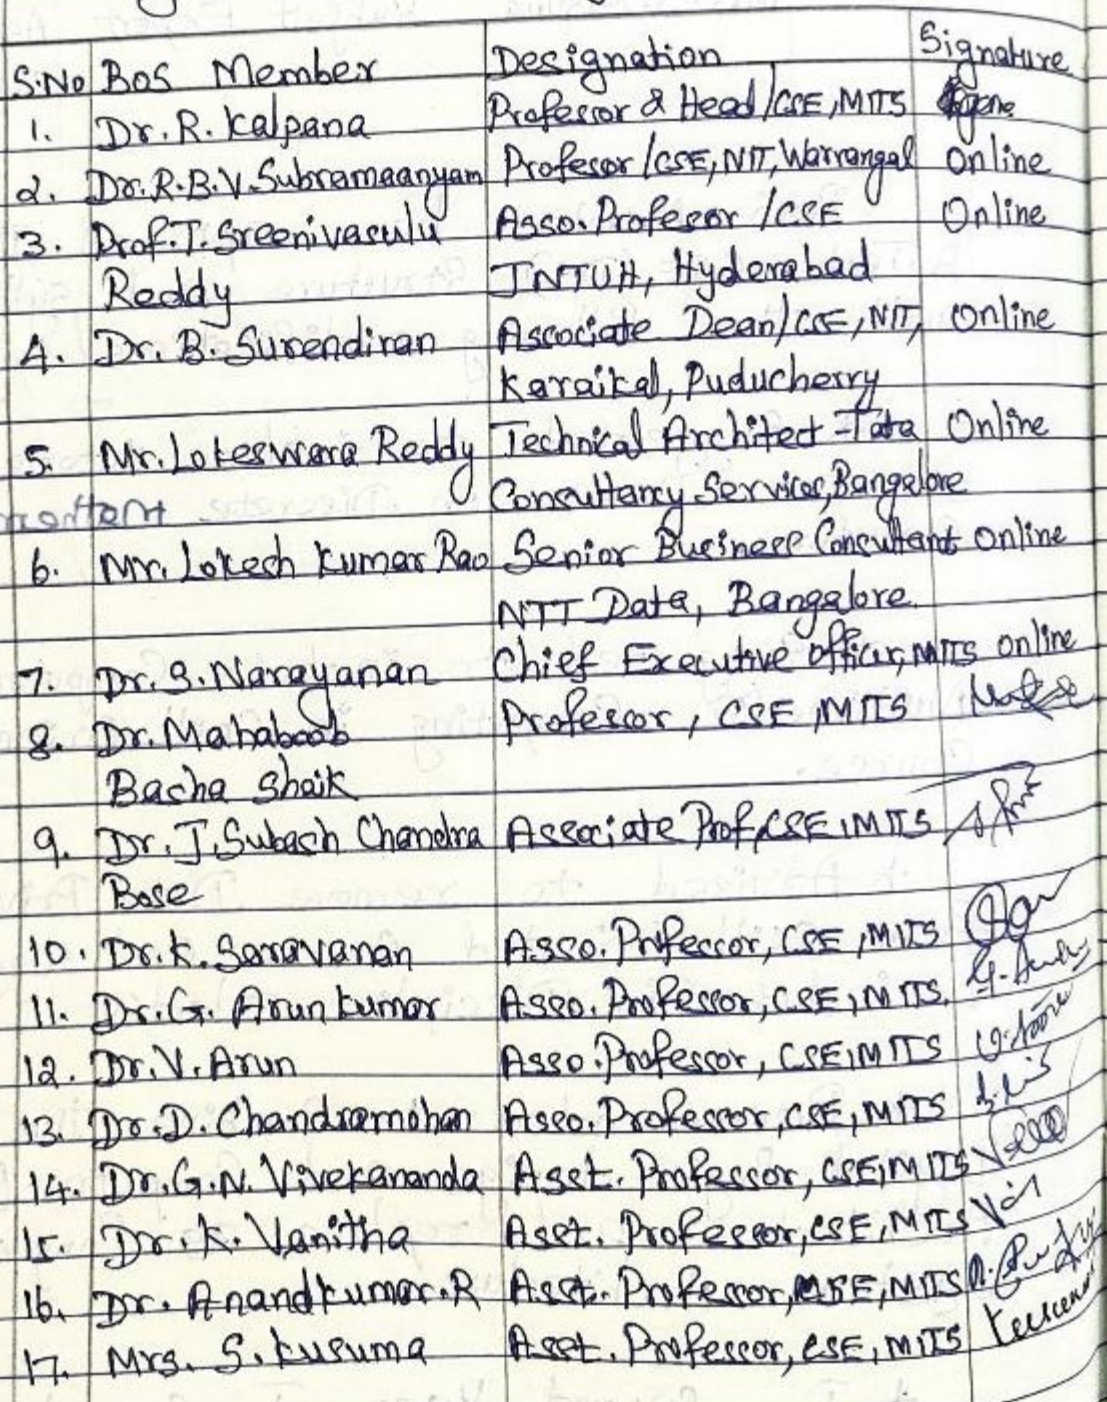 S.No BOS Member Designation Signature
1. Dr. R. Kalpana Professor & Head/CSE, MITS
2. Dr. R.B.V. Subramaanyam Profesor/CSE, NIT, Warrangal Online
3. Prof. T. Sreenivasulu Asso. Profesor/CSE Online
Reddy JNTUH, Hyderabad
4. Dr. B. Surendiran Associate Dean/CSE, NIT, Online
Karaikal, Puducherry
5. Mr. Lokeswara Reddy Technical Architect - Tata Online
Consultancy Services, Bangalore
6. Mr. Lokesh Kumar Rao Senior Business Consultant Online
NTT Data, Bangalore
7. Dr. S. Narayanan Chief Executive Officer, MITS online
8. Dr. Mahaboob Professor, CSE, MITS
Bacha Shaik
9. Dr. J. Subash Chandra Associate Prof, CSE, MITS
Bose
10. Dr. K. Saravanan Asso. Professor, CSE, MITS
11. Dr. G. Arun Kumar Asso. Professor, CSE, MITS.
12. Dr. V. Arun Asso. Professor, CSE, MITS
13. Dr. D. Chandramohan Asso. Professor, CSE, MITS
14. Dr. G.N. Vivekananda Asst. Professor, CSE, MITS
15. Dr. K. Vanitha Asst. Professor, CSE, MITS
16. Dr. Anandkumar. R Asst. Professor, CSE, MITS
17. Mrs. S. Kusuma Asst. Professor, CSE, MITS